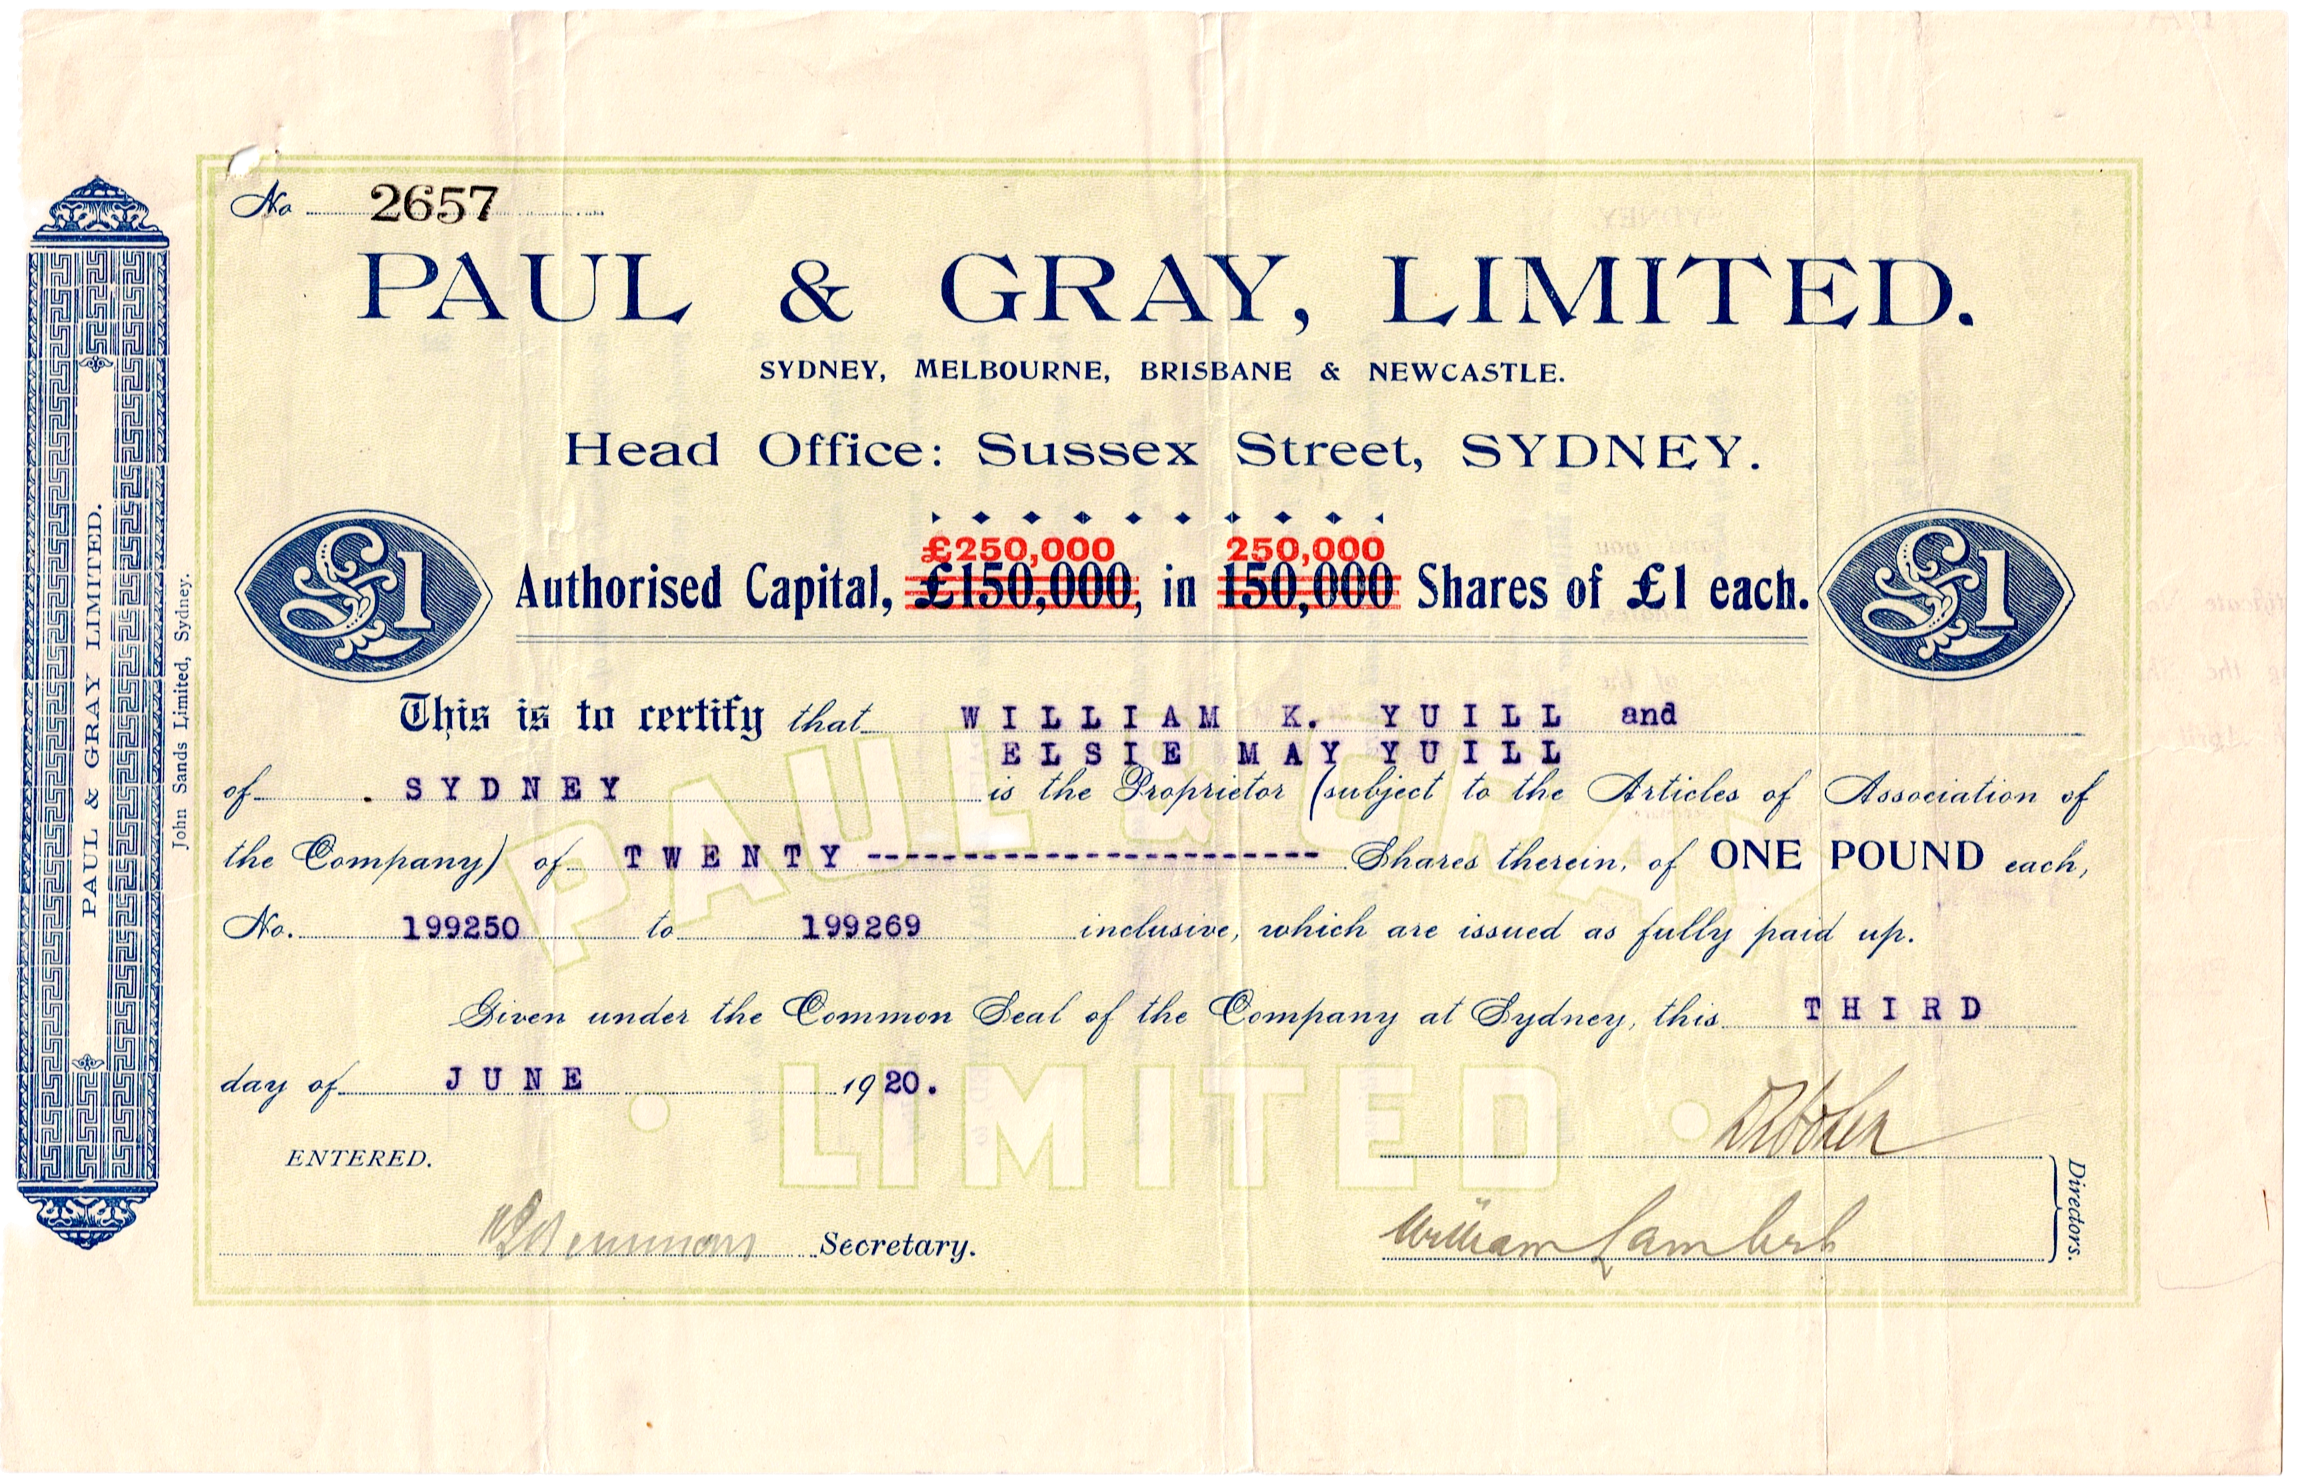 No 2657
PAUL & GRAY, LIMITED.
SYDNEY, MELBOURNE, BRISBANE & NEWCASTLE.
Head Office: Sussex Street, SYDNEY.
£250,000 250,000
Authorised Capital, £150,000, in 150,000 Shares of £1 each.
£1
£1
This is to certify that WILLIAM K. YUILL and
ELSIE MAY YUILL
of SYDNEY is the Proprietor (subject to the Articles of Association of
the Company) of TWENTY ------------------------ Shares therein, of ONE POUND each,
No. 199250 to 199269 inclusive, which are issued as fully paid up.
Given under the Common Seal of the Company at Sydney, this THIRD
day of JUNE 1920.
ENTERED.
Secretary.
William Lambert
Directors.
PAUL & GRAY LIMITED.
John Sands Limited, Sydney.
PAUL & GRAY
LIMITED